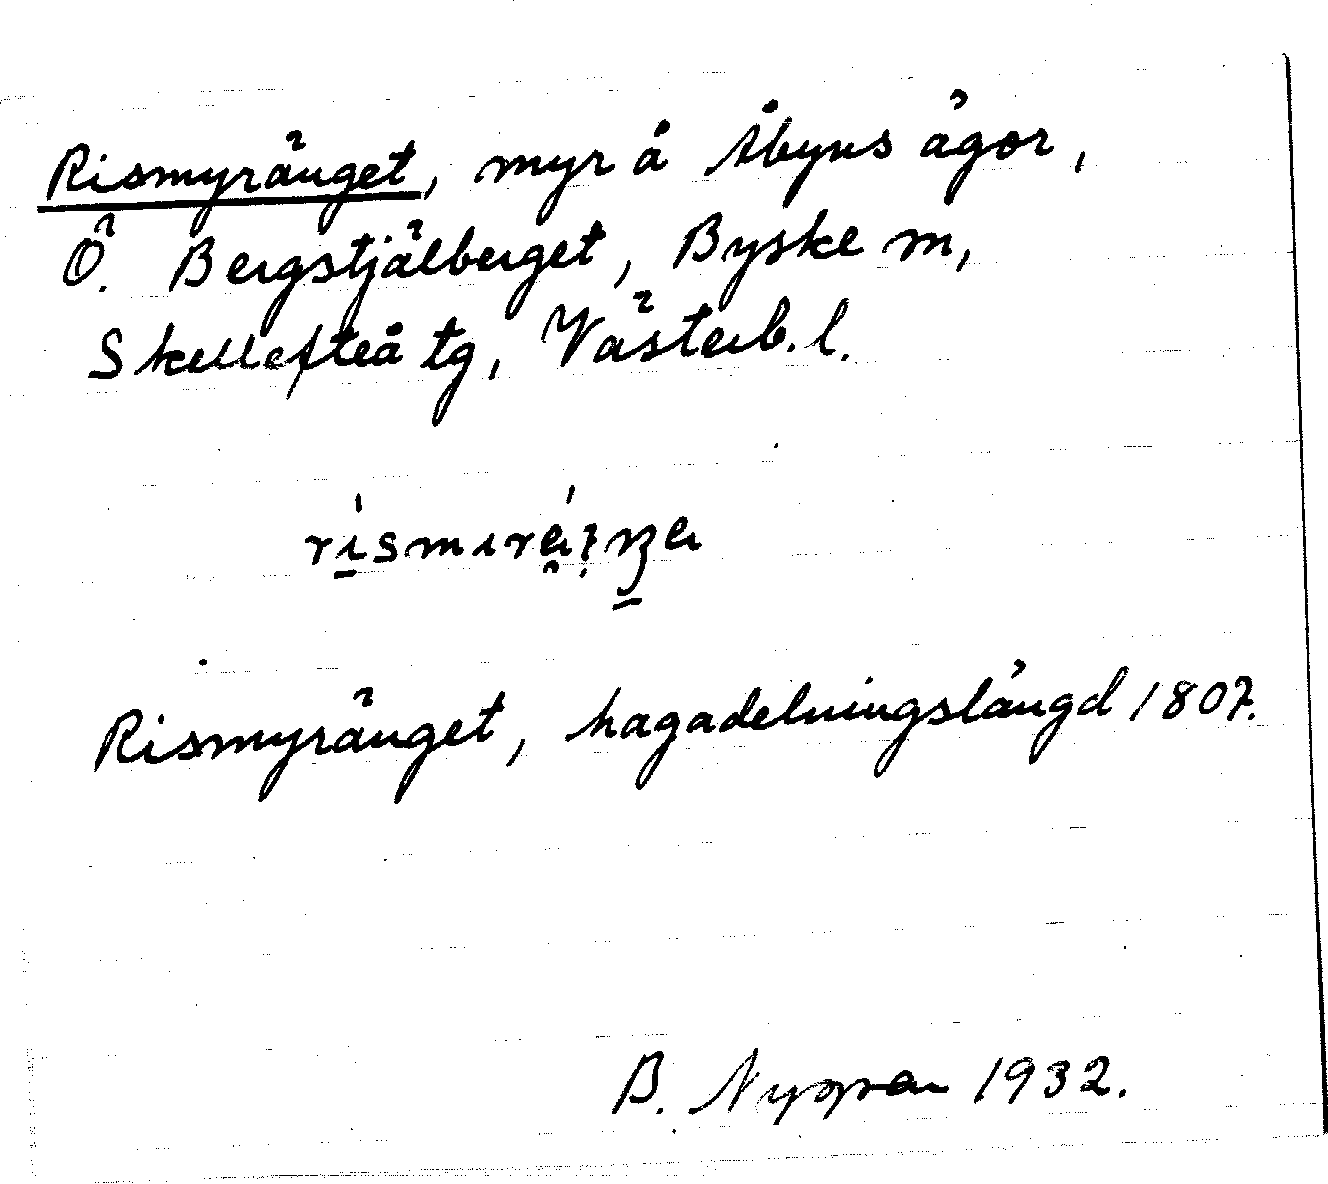 Rismyränget, myr å Åbyns ägor,
Ö. Bergstjälberget, Byske sn,
Skellefteå tg, Västerb. l.
Rismyränget, hagadelningslängd 1807.
B. 1932.